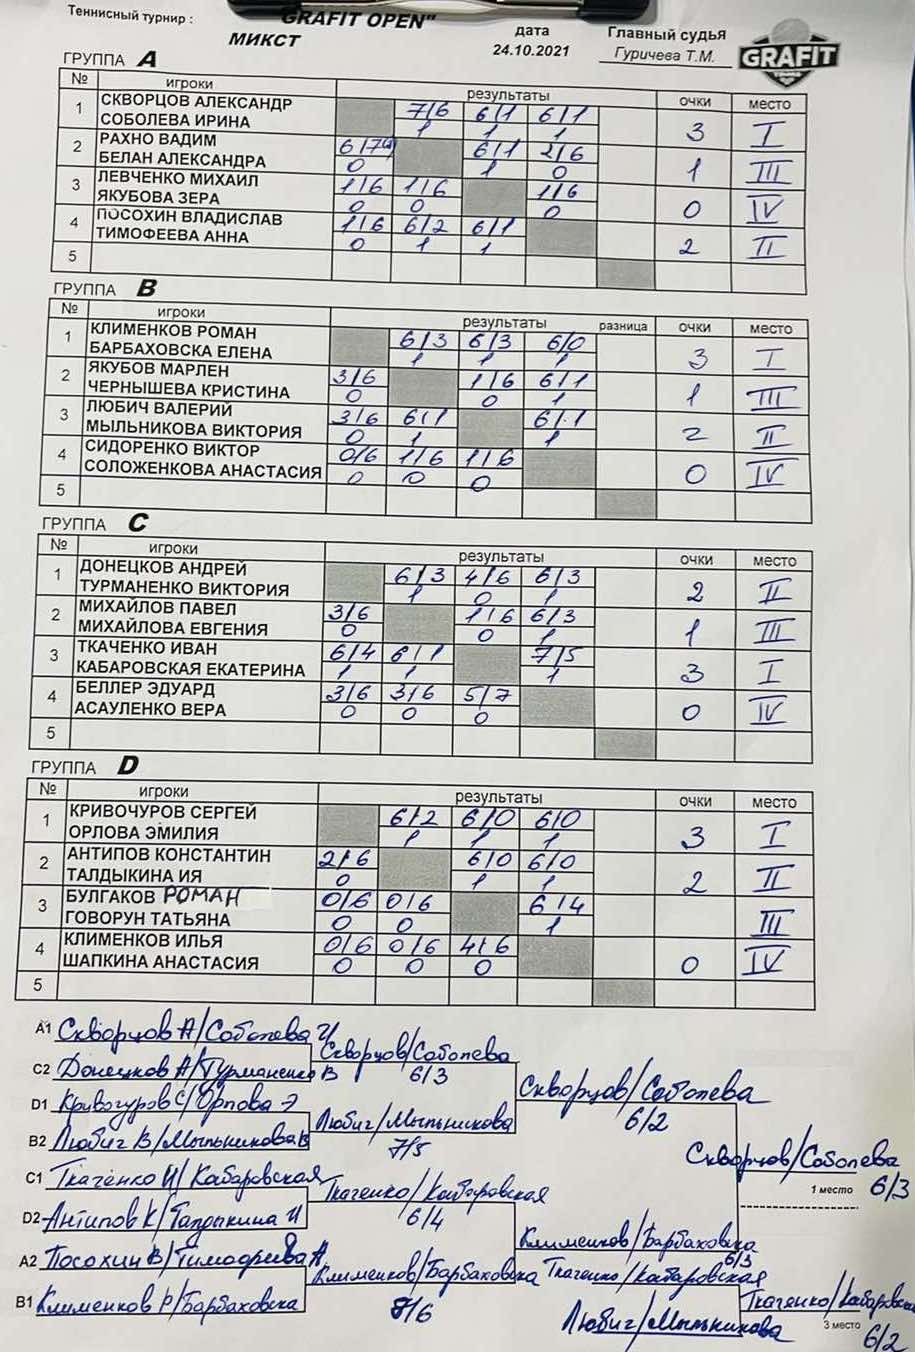 Теннисный турнир :
GRAFIT OPEN"
МИКСТ
дата
24.10.2021
Главный судья
Гуричева Т.М.
GRAFIT
ГРУППА A
№ игроки результаты очки место
1 СКВОРЦОВ АЛЕКСАНДР 7/6 6/1 6/1
СОБОЛЕВА ИРИНА 1 1 1 3 I
2 РАХНО ВАДИМ 6/7 6/1 2/6
БЕЛАН АЛЕКСАНДРА 0 1 0 1 III
3 ЛЕВЧЕНКО МИХАИЛ 1/6 1/6 1/6
ЯКУБОВА ЗЕРА 0 0 0 0 IV
4 ПОСОХИН ВЛАДИСЛАВ 1/6 6/2 6/1
ТИМОФЕЕВА АННА 0 1 1 2 II
5
ГРУППА B
№ игроки результаты разница очки место
1 КЛИМЕНКОВ РОМАН 6/3 6/3 6/0
БАРБАХОВСКА ЕЛЕНА 1 1 1 3 I
2 ЯКУБОВ МАРЛЕН 3/6 1/6 6/1
ЧЕРНЫШЕВА КРИСТИНА 0 0 1 1 III
3 ЛЮБИЧ ВАЛЕРИЙ 3/6 6/1 6/1
МЫЛЬНИКОВА ВИКТОРИЯ 0 1 1 2 II
4 СИДОРЕНКО ВИКТОР 0/6 1/6 1/6
СОЛОЖЕНКОВА АНАСТАСИЯ 0 0 0 0 IV
5
ГРУППА C
№ игроки результаты очки место
1 ДОНЕЦКОВ АНДРЕЙ 6/3 4/6 6/3
ТУРМАНЕНКО ВИКТОРИЯ 1 0 1 2 II
2 МИХАЙЛОВ ПАВЕЛ 3/6 1/6 6/3
МИХАЙЛОВА ЕВГЕНИЯ 0 0 1 1 III
3 ТКАЧЕНКО ИВАН 6/4 6/1 7/5
КАБАРОВСКАЯ ЕКАТЕРИНА 1 1 1 3 I
4 БЕЛЛЕР ЭДУАРД 3/6 3/6 5/7
АСАУЛЕНКО ВЕРА 0 0 0 0 IV
5
ГРУППА D
№ игроки результаты очки место
1 КРИВОЧУРОВ СЕРГЕЙ 6/2 6/0 6/0
ОРЛОВА ЭМИЛИЯ 1 1 1 3 I
2 АНТИПОВ КОНСТАНТИН 2/6 6/0 6/0
ТАЛДЫКИНА ИЯ 0 1 1 2 II
3 БУЛГАКОВ РОМАН 0/6 0/6 6/4
ГОВОРУН ТАТЬЯНА 0 0 1 III
4 КЛИМЕНКОВ ИЛЬЯ 0/6 0/6 4/6
ШАПКИНА АНАСТАСИЯ 0 0 0 0 IV
5
A1 Скворцов А/Соболева И
Скворцов/Соболева
C2 Донецков А/Турманенко В
6/3
Скворцов/Соболева
D1 Кривочуров С/Орлова Э
6/2
Любич/Мыльникова
B2 Любич В/Мыльникова В
7/5
Скворцов/Соболева
C1 Ткаченко И/Кабаровская
1 место 6/3
Ткаченко/Кабаровская
D2 Антипов К/Талдыкина И
6/4
Клименков/Барбаховска
A2 Посохин В/Тимофеева А
6/3
Клименков/Барбаховска
Ткаченко/Кабаровская
B1 Клименков Р/Барбаховска
/6
Ткаченко/Кабаровск
Любич/Мыльникова
3 место 6/2